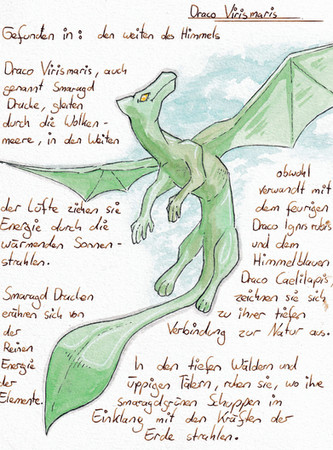 Draco Virismaris
Gefunden in: den weiten des Himmels
Draco Virismaris, auch
genannt Smaragd
Drache, gleiten
durch die Wolken-
meere, in den Weiten
der Lüfte ziehen sie
Energie durch die
wärmenden Sonnen-
strahlen.
Smaragd Drachen
ernähren sich von
der
Reinen
Energie
der
Elemente.
obwohl
verwandt mit
dem feurigen
Draco Ignis rubis
und dem
Himmelblauen
Draco Caelilapis,
zeichnen sie sich
zu ihrer tiefen
Verbindung zur Natur aus.
In den tiefen Wäldern und
üppigen Tälern, ruhen sie, wo ihre
smaragdgrünen Schuppen im
Einklang mit den Kräften der
Erde strahlen.